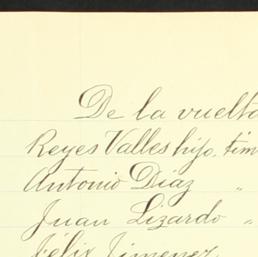 De la vuelta
Reyes Valles hijo, tim
Antonio Diaz "
Juan Lizardo "
Félix Jimenez